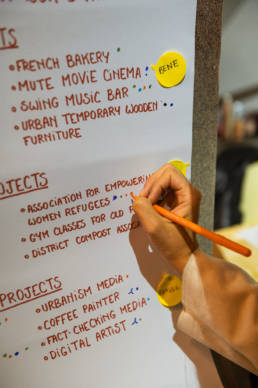 • FRENCH BAKERY
• MUTE MOVIE CINEMA
BENE
• SWING MUSIC BAR
• URBAN TEMPORARY WOODEN
FURNITURE
• ASSOCIATION FOR EMPOWERING
WOMEN REFUGEES
• GYM CLASSES FOR OLD
• DISTRICT COMPOST
PROJECTS
• URBANISM MEDIA
• COFFEE PAINTER
• FACT-CHECKING MEDIA
• DIGITAL ARTIST